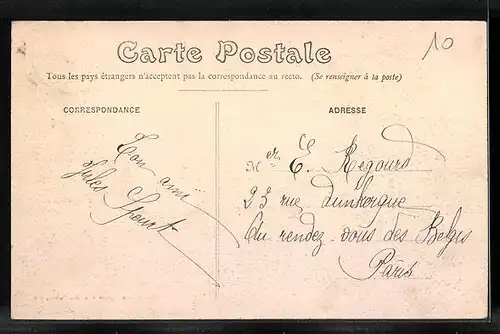 Carte Postale
10
Tous les pays étrangers n'acceptent pas la correspondance au recto. (Se renseigner à la poste)
CORRESPONDANCE
ADRESSE
Ton ami
Jules
E. Regours
23 rue Dunkerque
Au rendez-vous des Belges
Paris